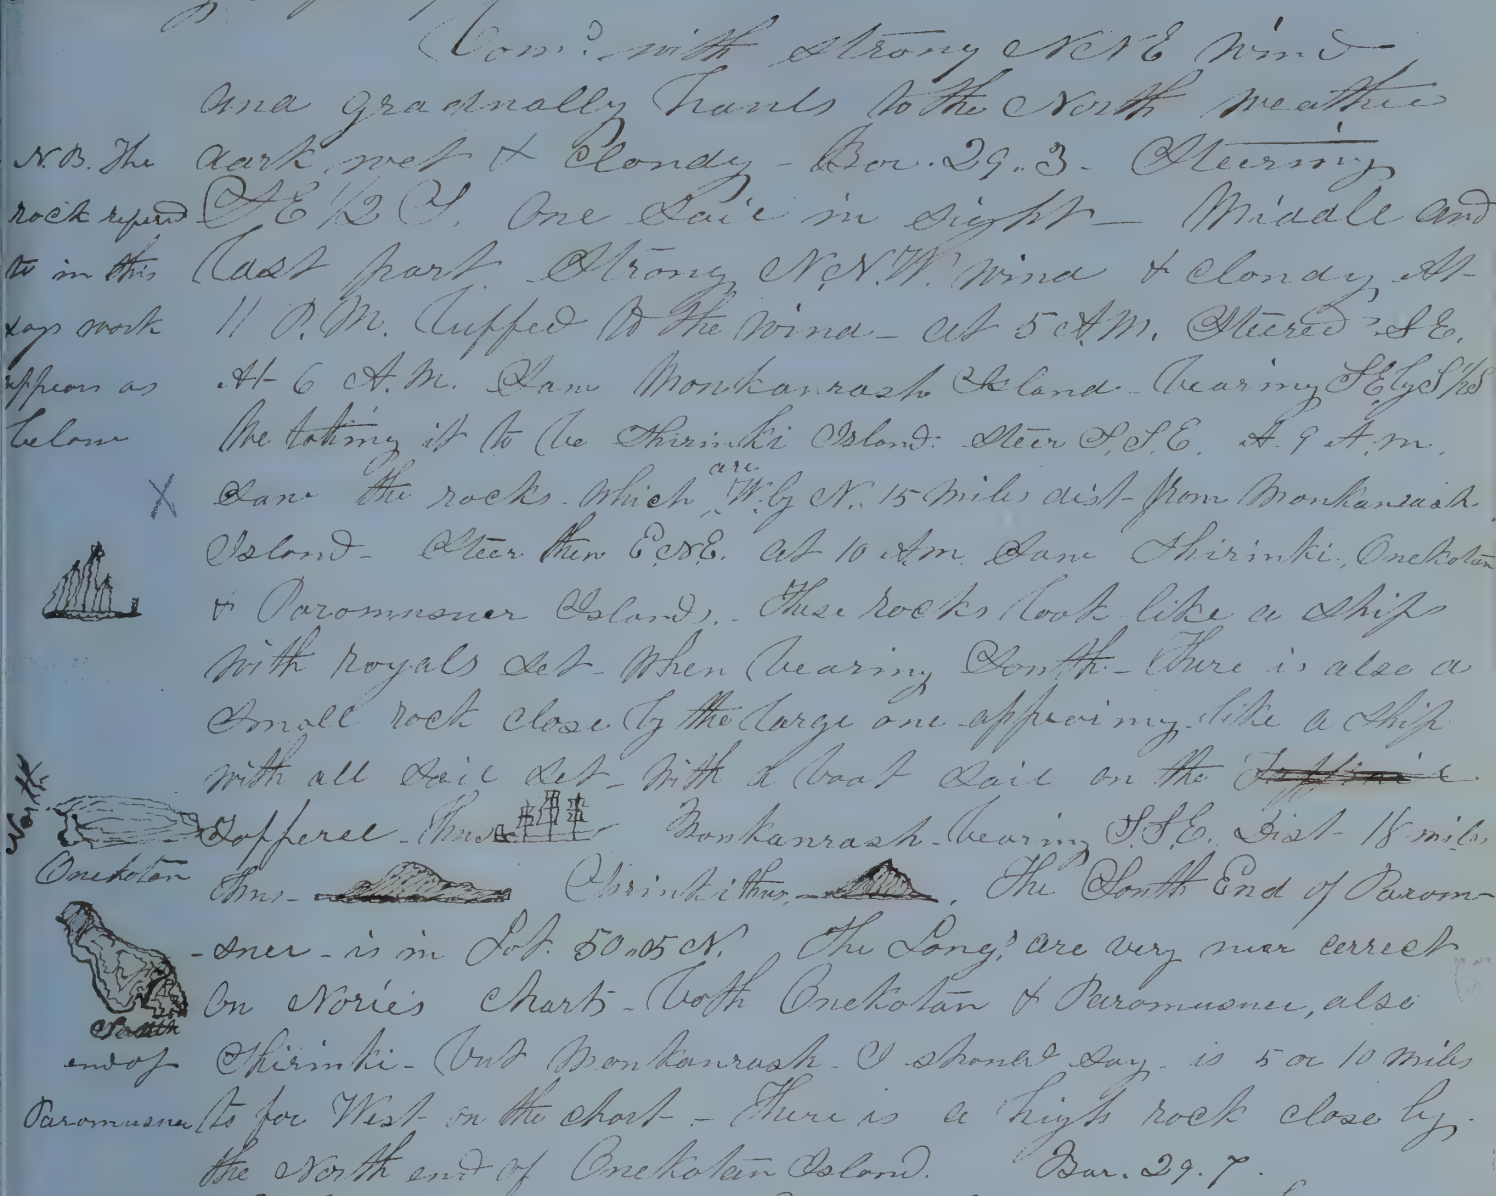 Com.d with strong NNE wind
and gradually hauls to the North weather
dark wet & Cloudy - Bar. 29.3 - Steering
SE 1/2 S. One Sail in sight - Middle and
last part Strong N.N.W. wind & cloudy At
11 P.M. luffed to the wind - at 5 A.M. Steered S E.
At 6 A.M. Saw Monkanrash Island - bearing S E by S 1/2 S
We taking it to be Shirinki Island: Steer S.S.E. At 9 A.m.
Saw the rocks - which are W. by N. 15 miles dist from Monkanrash
Island - Steer then E.N.E. at 10 A.m. Saw Shirinki, Onekotan
& Paromusuer Islands. - These rocks look like a ship
with royals set - when bearing South - There is also a
small rock close by the large one appearing like a ship
with all sail set - with a boat sail on the
Tofferel - Thus Monkanrash - bearing S.S.E. Dist - 18 miles
thus - Chrinki thus, - . The South End of Parom-
-suer - is in Lat. 50..05 N. The Long.s are very near correct
on Norie's Charts - both Onekotan & Paromusuer, also
Shirinki - but Monkanrash - I should say - is 5 or 10 miles
to far West on the chart - There is a high rock close by
the North end of Onekotan Island. Bar. 29.7.
N.B. The
rock refered
to in this
days work
appears as
below
X
North
Onekotan
South
end of
Paromusuer